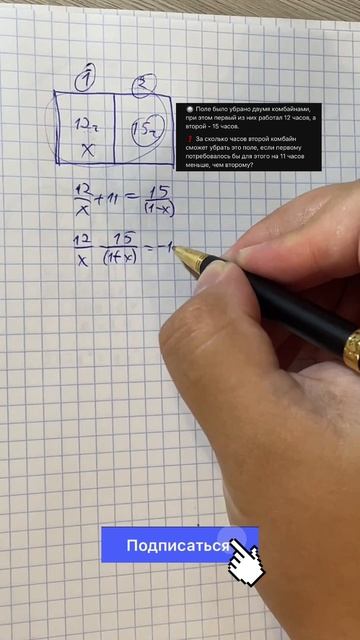 1 2
12ч 15ч
x
Поле было убрано двумя комбайнами,
при этом первый из них работал 12 часов, а
второй - 15 часов.
За сколько часов второй комбайн
сможет убрать это поле, если первому
потребовалось бы для этого на 11 часов
меньше, чем второму?
12/x + 11 = 15/(1-x)
12/x - 15/(1-x) = -1
Подписаться